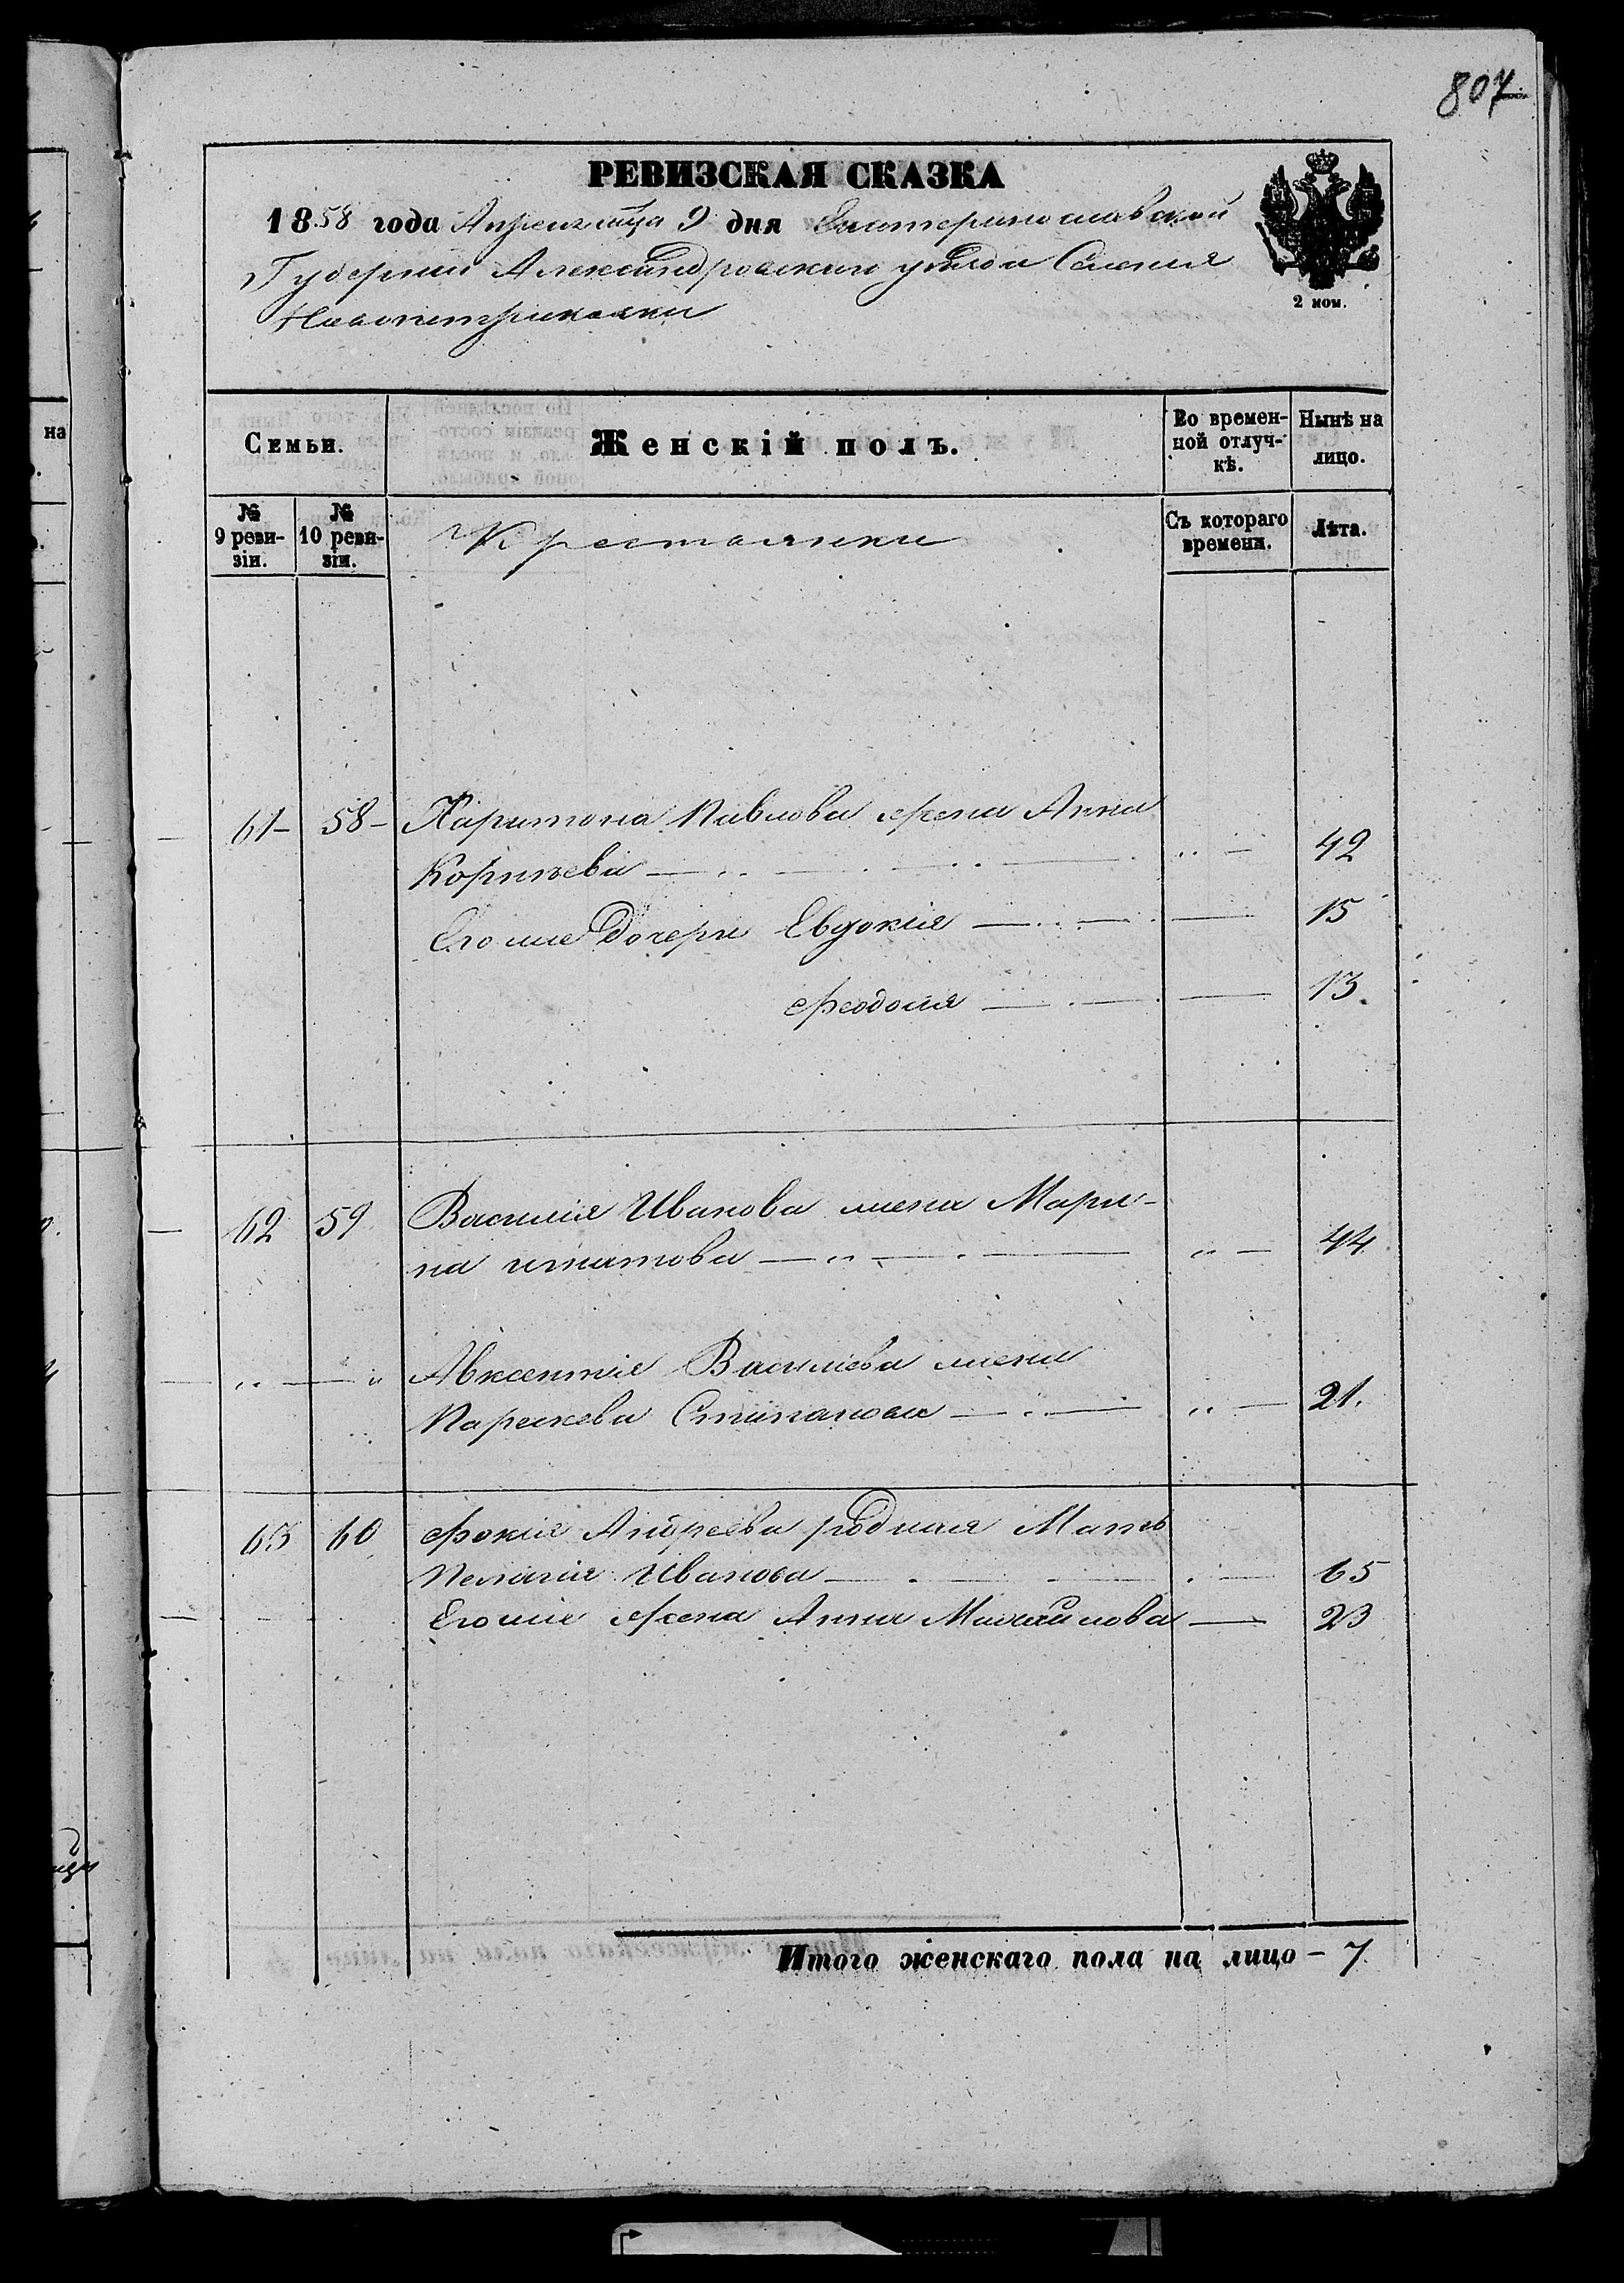 807
РЕВИЗСКАЯ СКАЗКА
1858 года Апреля мца 9 дня Екатеринославской
Губернии Александровского уезда Селения
Новопетриковки
2 коп.
Семьи. Женскій полъ. Во времен-ной отлуч-кѣ. Нынѣ на лицо.
№ 9 реви-зіи. № 10 реви-зіи. Крестьянки Съ котораго времени. Лѣта.
61 58 Харитона Павлова жена Анна
Корнѣева 42
Его же дочери Евдокія 15
Феодосия 13.
62 59 Василія Иванова жена Мари-
на игнатова 44
Авксентія Василіева жена
Параскева Стипанова 21.
63 60 Фокія Андреева родная Мать
Пелагія Иванова 65
Его же жена Анна Михайлова 23
Итого женскаго пола на лицо – 7.
на